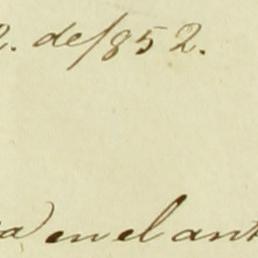 de 1852.
en el ant